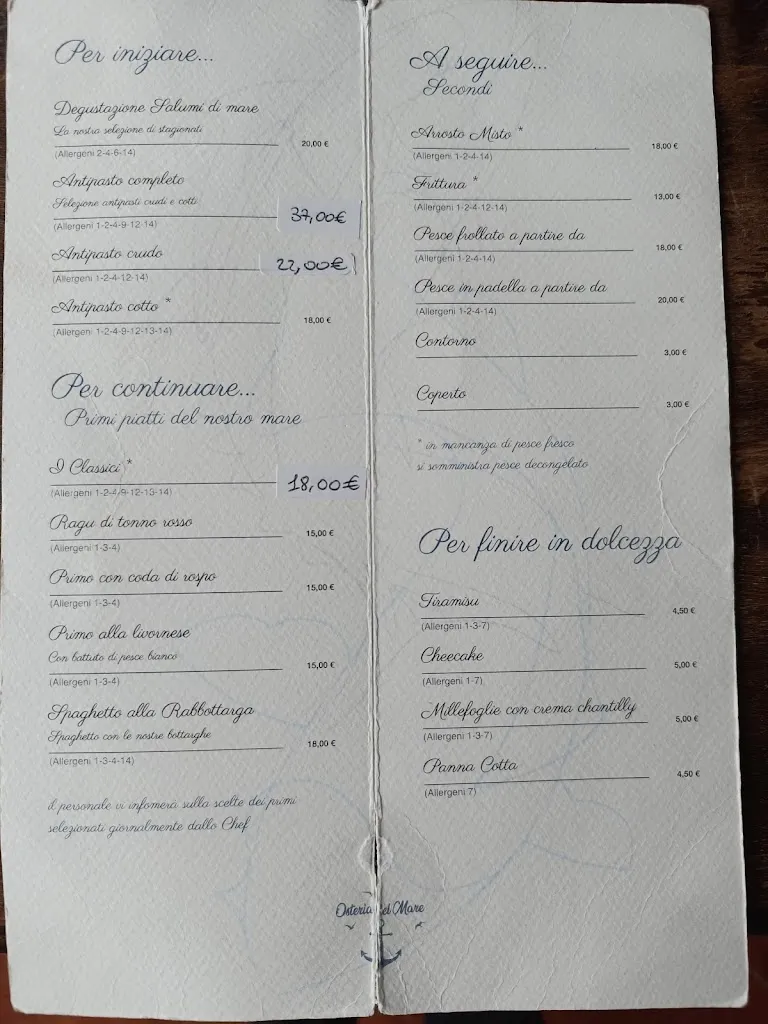 Per iniziare...
Degustazione Salumi di mare
La nostra selezione di stagionati
20,00 €
(Allergeni 2-4-6-14)
Antipasto completo
Selezione antipasti crudi e cotti
37,00€
(Allergeni 1-2-4-9-12-14)
Antipasto crudo
22,00€
(Allergeni 1-2-4-12-14)
Antipasto cotto *
18,00 €
(Allergeni 1-2-4-9-12-13-14)
Per continuare...
Primi piatti del nostro mare
I Classici *
18,00€
(Allergeni 1-2-4-9-12-13-14)
Ragu di tonno rosso
15,00 €
(Allergeni 1-3-4)
Primo con coda di rospo
15,00 €
(Allergeni 1-3-4)
Primo alla livornese
Con battuto di pesce bianco
15,00 €
(Allergeni 1-3-4)
Spaghetto alla Rabbottarga
Spaghetto con le nostre bottarghe
18,00 €
(Allergeni 1-3-4-14)
il personale vi infomerà sulla scelte dei primi
selezionati giornalmente dallo Chef
A seguire...
Secondi
Arrosto Misto *
18,00 €
(Allergeni 1-2-4-14)
Frittura *
13,00 €
(Allergeni 1-2-4-12-14)
Pesce frollato a partire da
18,00 €
(Allergeni 1-2-4-14)
Pesce in padella a partire da
20,00 €
(Allergeni 1-2-4-14)
Contorno
3,00 €
Coperto
3,00 €
* in mancanza di pesce fresco
si somministra pesce decongelato
Per finire in dolcezza
Tiramisu
4,50 €
(Allergeni 1-3-7)
Cheecake
5,00 €
(Allergeni 1-7)
Millefoglie con crema chantilly
5,00 €
(Allergeni 1-3-7)
Panna Cotta
4,50 €
(Allergeni 7)
Osteria del Mare